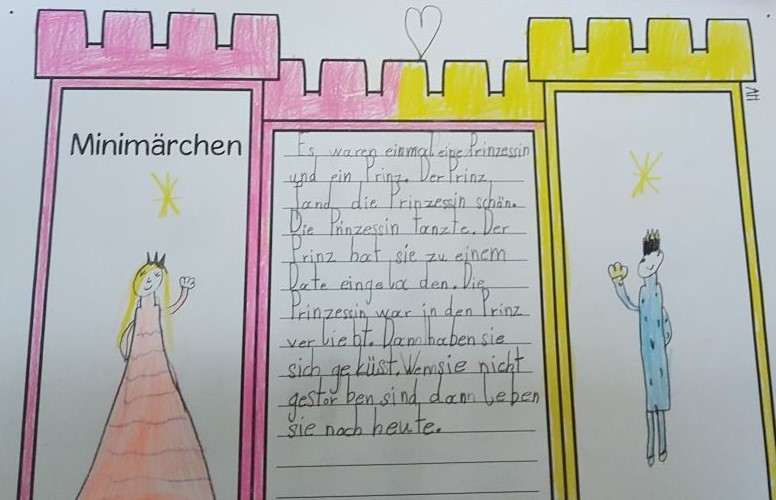 Minimärchen
Es waren einmal eine Prinzessin
und ein Prinz. Der Prinz
fand die Prinzessin schön.
Die Prinzessin tanzte. Der
Prinz hat sie zu einem
Date eingela den. Die
Prinzessin war in den Prinz
ver liebt. Dann haben sie
sich geküst. Wenn sie nicht
gestor ben sind, dann leben
sie noch heute.